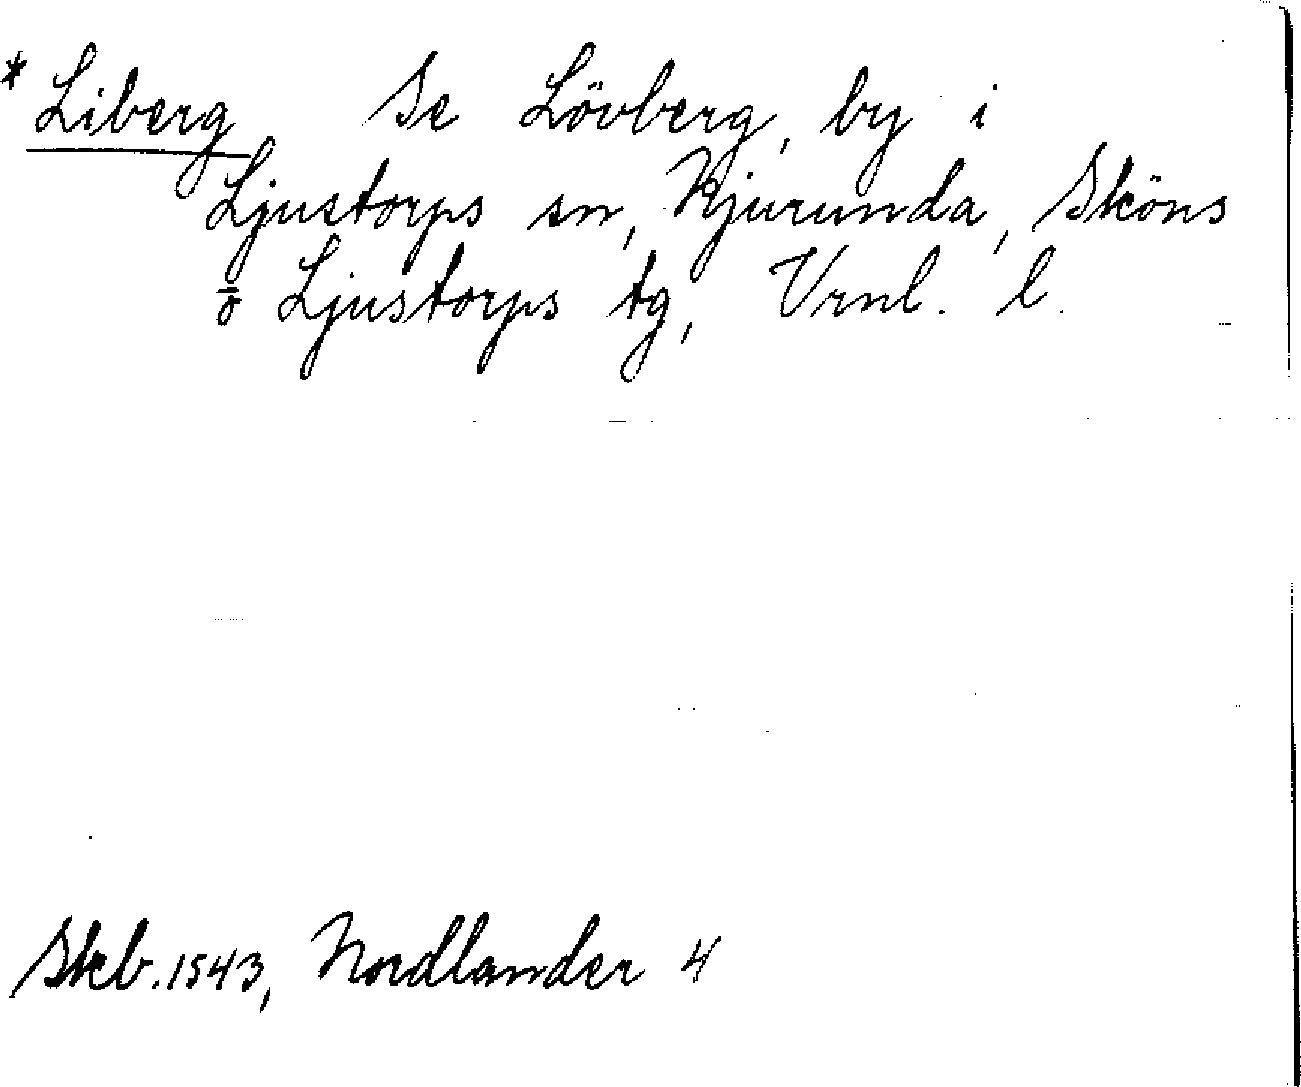 * Liberg Se Lövberg, by i
Ljustorps sn, Njurunda, Sköns
o Ljustorps tg, Vrnl. l.
Skb. 1543, Nordlander 4